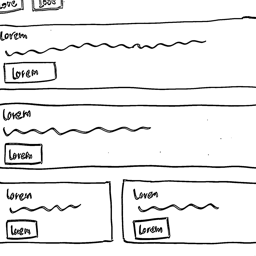 Lorem
Lorem
Lorem
Lorem
Lorem Lorem
Lorem Lorem